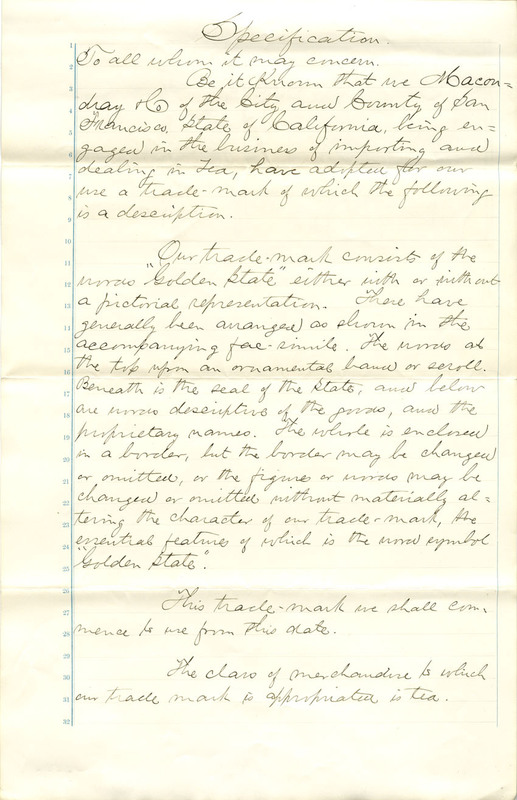 Specification.
1
To all whom it may concern.
2
Be it Known that we Macon=
3
dray & Co of the City and County of San
4
Francisco, State of California, being en=
5
gaged in the business of importing and
6
dealing in Tea, have adopted for our
7
use a trade-mark of which the following
8
is a description.
9
10
Our trade-mark consists of the
11
words "Golden State" either with or without
12
a pictorial representation. These have
13
generally been arranged as shown in the
14
accompanying fac-simile. The words at
15
the top upon an ornamental band or scroll.
16
Beneath is the seal of the State, and below
17
are words descriptive of the goods, and the
18
proprietary names. The whole is enclosed
19
in a border, but the border may be changed
20
or omitted, or the figures or words may be
21
changed or omitted without materially al=
22
tering the character of our trade-mark, the
23
essential features of which is the word symbol
24
"Golden State".
25
26
This trade-mark we shall com-
27
mence to use from this date.
28
29
The class of merchandise to which
30
our trade mark is appropriated is tea.
31
32